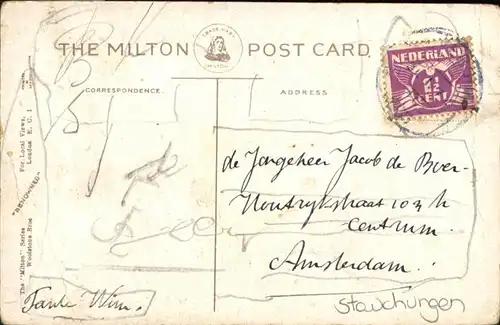 THE MILTON POST CARD
TRADE MARK
MILTON
NEDERLAND
1½
CENT
CORRESPONDENCE.
ADDRESS
The "Milton" Series
Woolstone Bros
"RENOWNED"
For Local Views.
London E. C. 1
de Jongeheer Jacob de Boer
Houtrijkstraat 103 h
Centrum.
Amsterdam.
Tante Wim.
Stauchungen